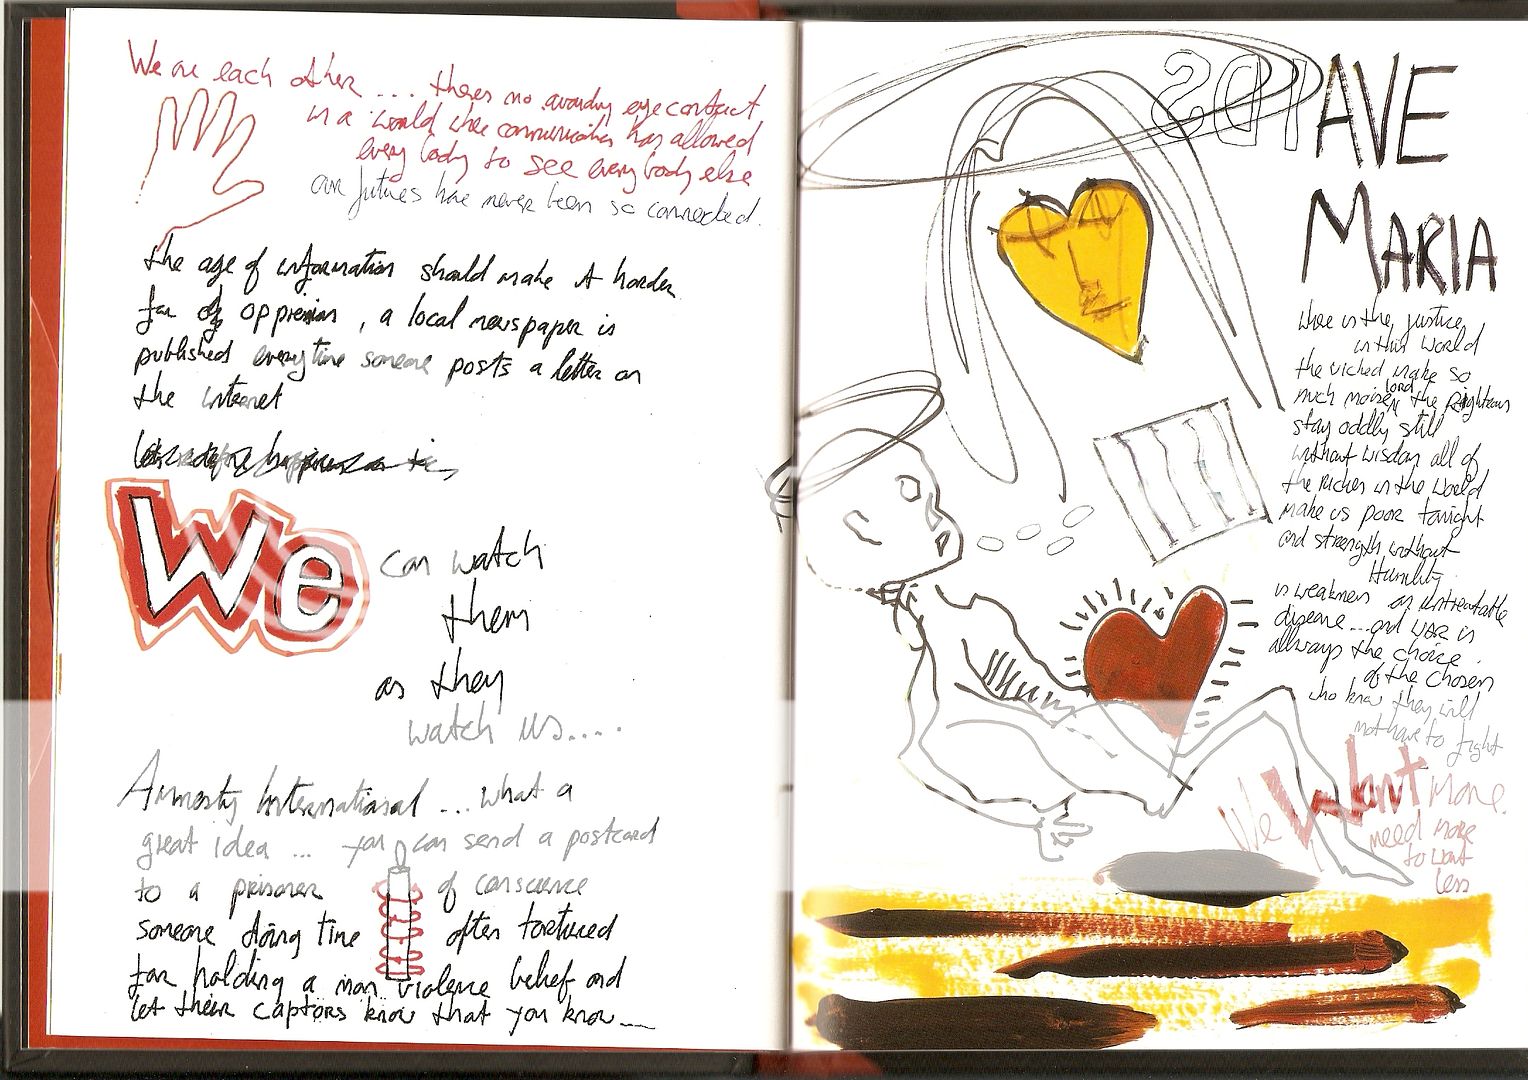 We are each other ... theres no avoiding eye contact
in a world where communication has allowed
every body to see every body else
our futures have never been so connected.
the age of information should make it harder
for oppression, a local newspaper is
published everytime someone posts a letter on
the internet
We
can watch
them
as they
watch us....
Amnesty International ... what a
great idea ... you can send a postcard
to a prisoner of conscience
someone doing time often tortured
for holding a non violence belief and
let their captors know that you know __
AVE
MARIA
where is the justice
in this world
the wicked make so
much noise lord, the righteous
stay oddly still
without wisdom all of
the riches in the world
make us poor tonight
and strength without
Humility
is weakness an untreatable
disease...and war is
allways the choice
of the chosen
who know they will
not have to fight
We Want More.
need more
to want
less